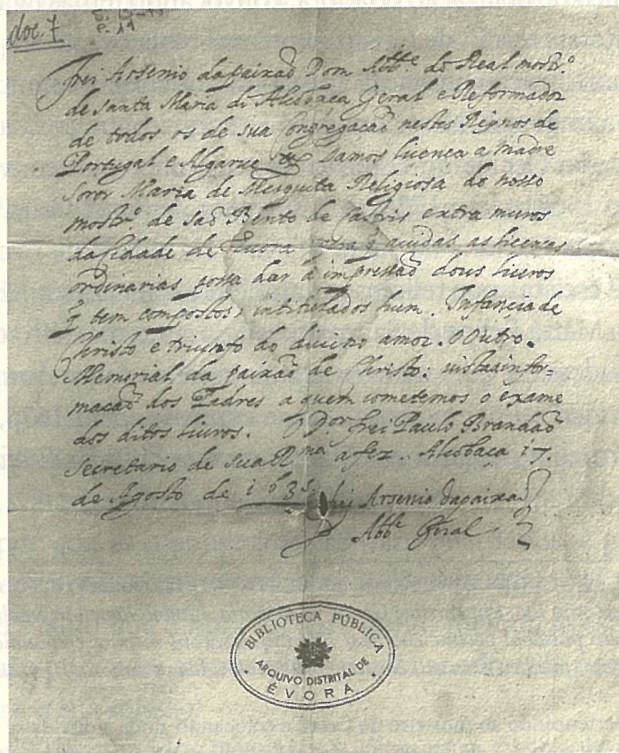 doc. 7
Frei Arsenio da paixaõ Dom Abb.e do Real mostr.o
de santa Maria de Alcobaça Geral e Reformador
de todos os de sua Congregaçaõ nestes Reynos de
Portugal e Algarue &. Damos licença a madre
soror Maria de Mesquita Religiosa do nosso
mostr.o de saõ Bento de Castris extra muros
da Cidade de Euora para q̃ auidas as licenças
ordinarias possa dar à impressaõ dous liuros
q̃ tem compostos, intitulados hum. Infancia de
Christo e triunfo do diuino amor. O Outro.
Memorial da paixaõ de Christo: uista a infor-
maçaõ dos Padres a quem cometemos o exame
dos ditos liuros. O D.or frei Paulo Brandaõ
secretario de sua R.ma a fez. Alcobaça 17.
de Agosto de 163
frei Arsenio da paixaõ
Abb.e Geral
BIBLIOTECA PÚBLICA
ARQUIVO DISTRITAL DE
ÉVORA